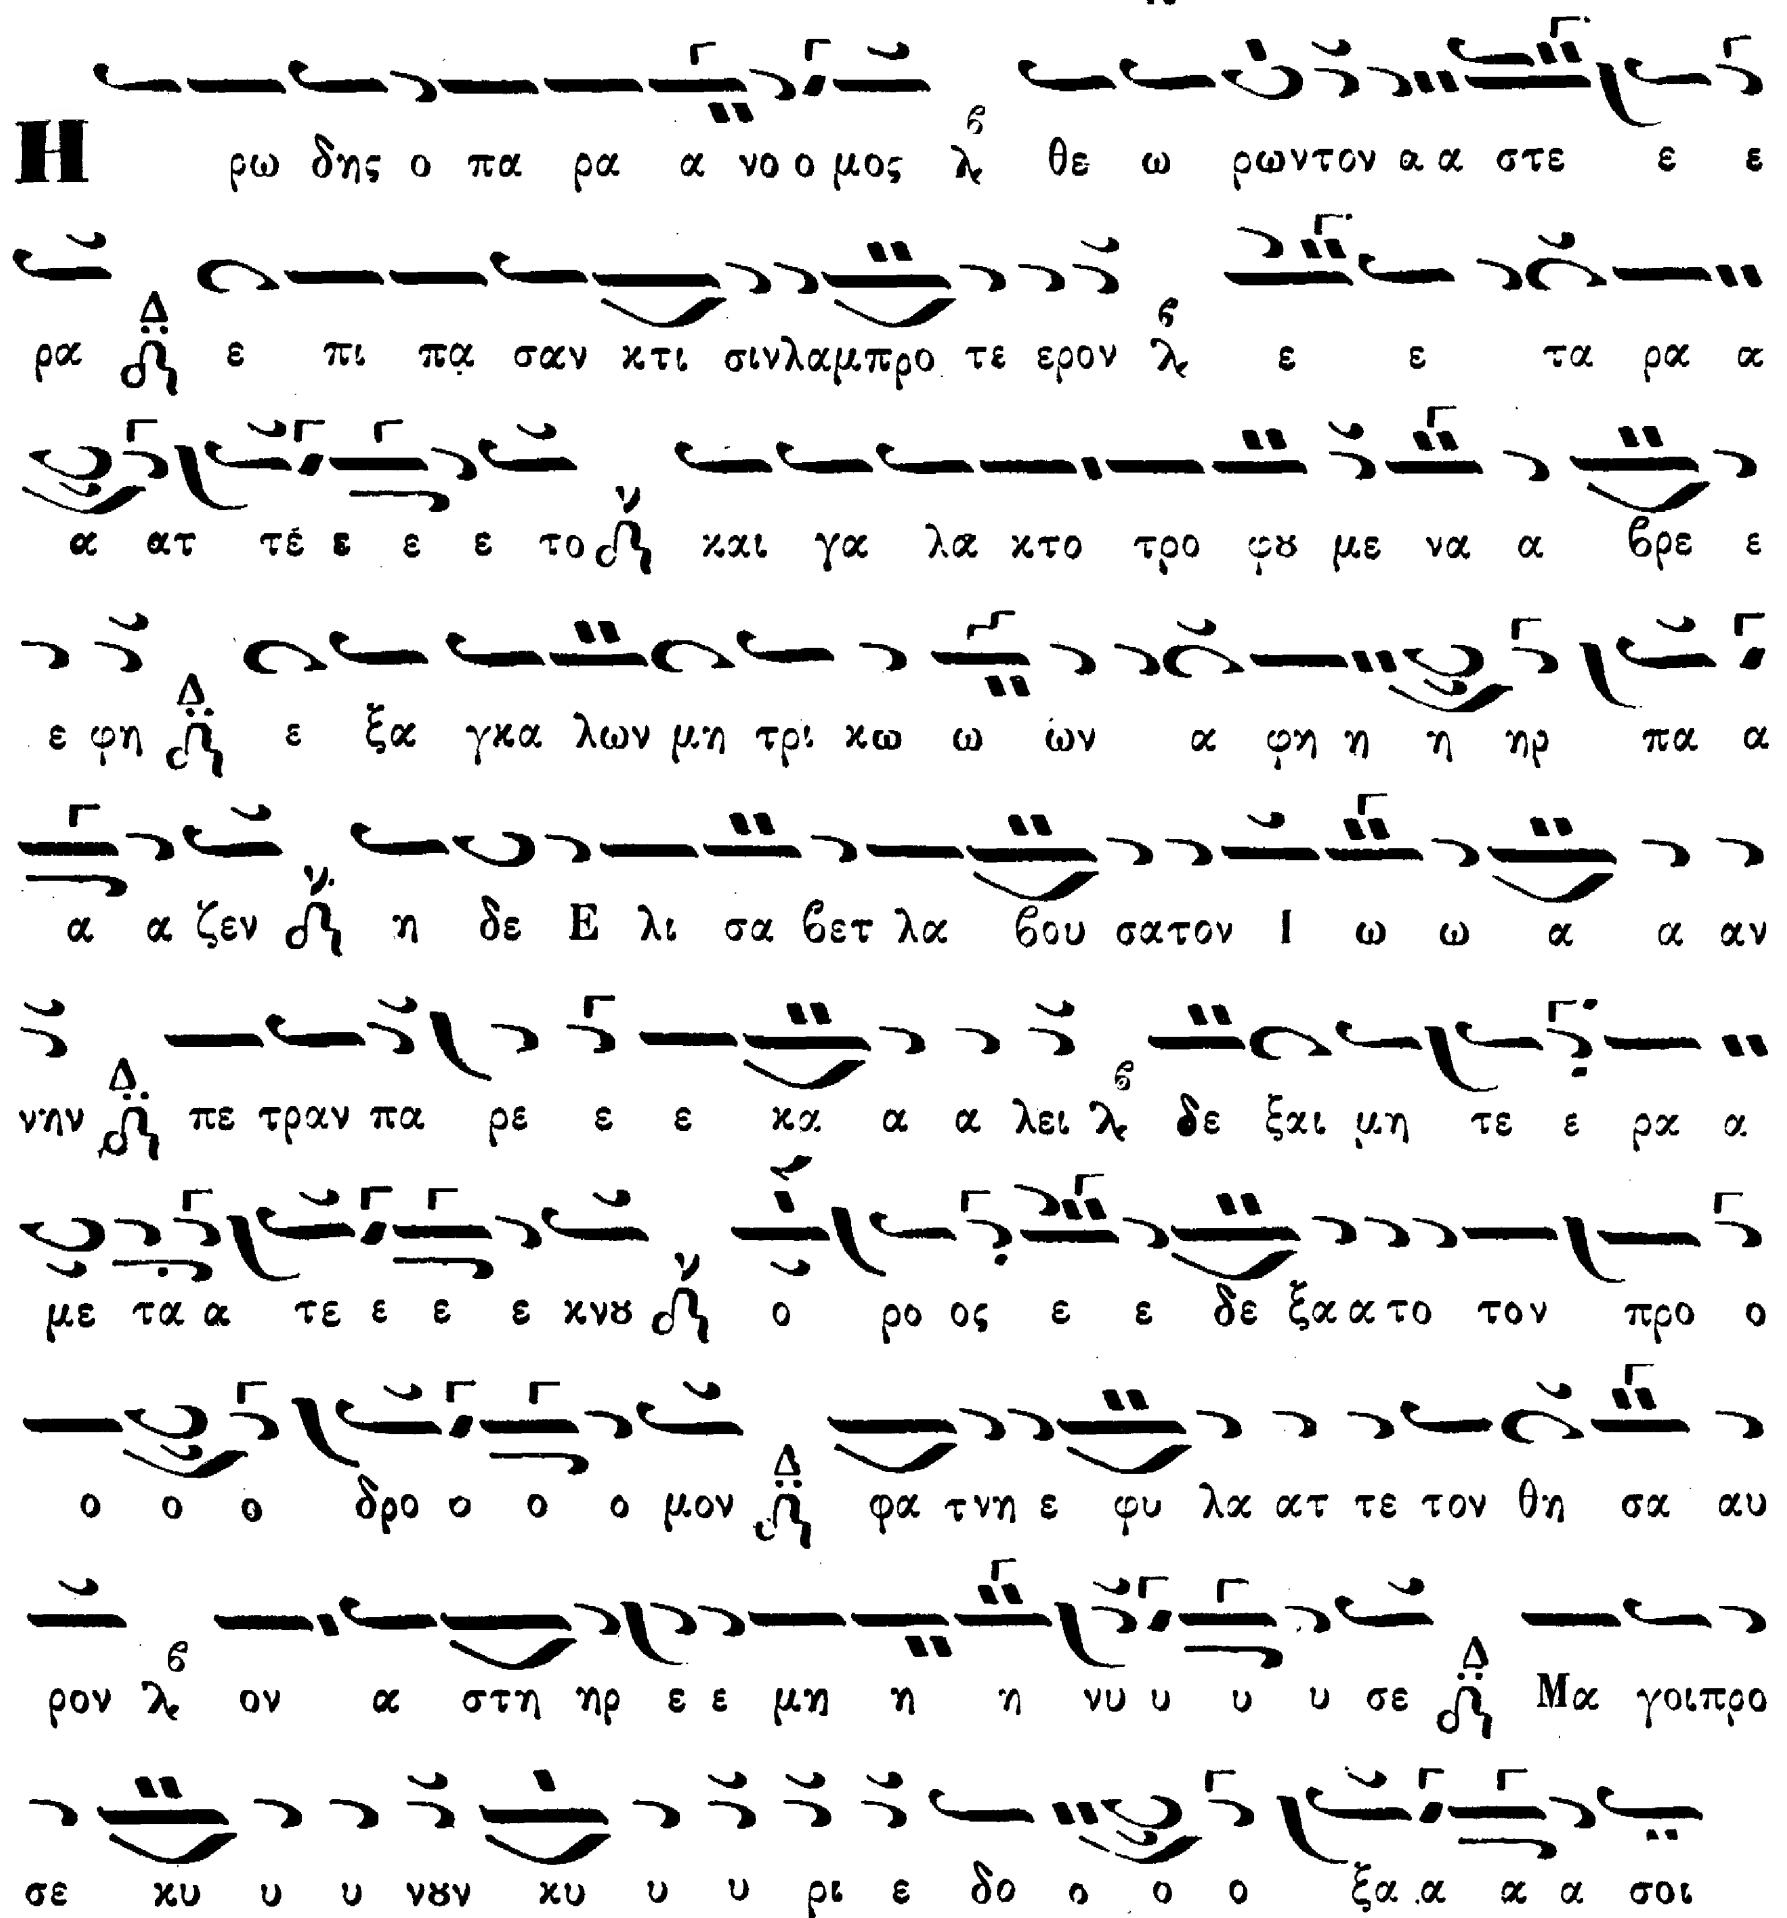 Η ρω δης ο πα ρα α νο ο μος θε ω ρωντον α α στε ε ε
ρα Δ ε πι πα σαν κτι σινλαμπρο τε ερον ε ε τα ρα α
α ατ τέ ε ε ε το ν και γα λα κτο τρο φȣ με να α ϐρε ε
ε φη Δ ε ξα γκα λων μη τρι κω ω ών α φη η η ηρ πα α
α α ζεν ν η δε Ε λι σα ϐετ λα ϐου σατον Ι ω ω α α αν
νην Δ πε τραν πα ρε ε ε κα α α λει δε ξαι μη τε ε ρα α
με τα α τε ε ε ε κνȣ ν ο ρο ος ε ε δε ξα α το τον προ ο
ο ο ο δρο ο ο ο μον Δ φα τνη ε φυ λα ατ τε τον θη σα αυ
ρον ον α στη ηρ ε ε μη η η νυ υ υ υ σε Δ Μα γοιπρο
σε κυ υ υ νȣν κυ υ υ ρι ε δο ο ο ο ξα α α α σοι